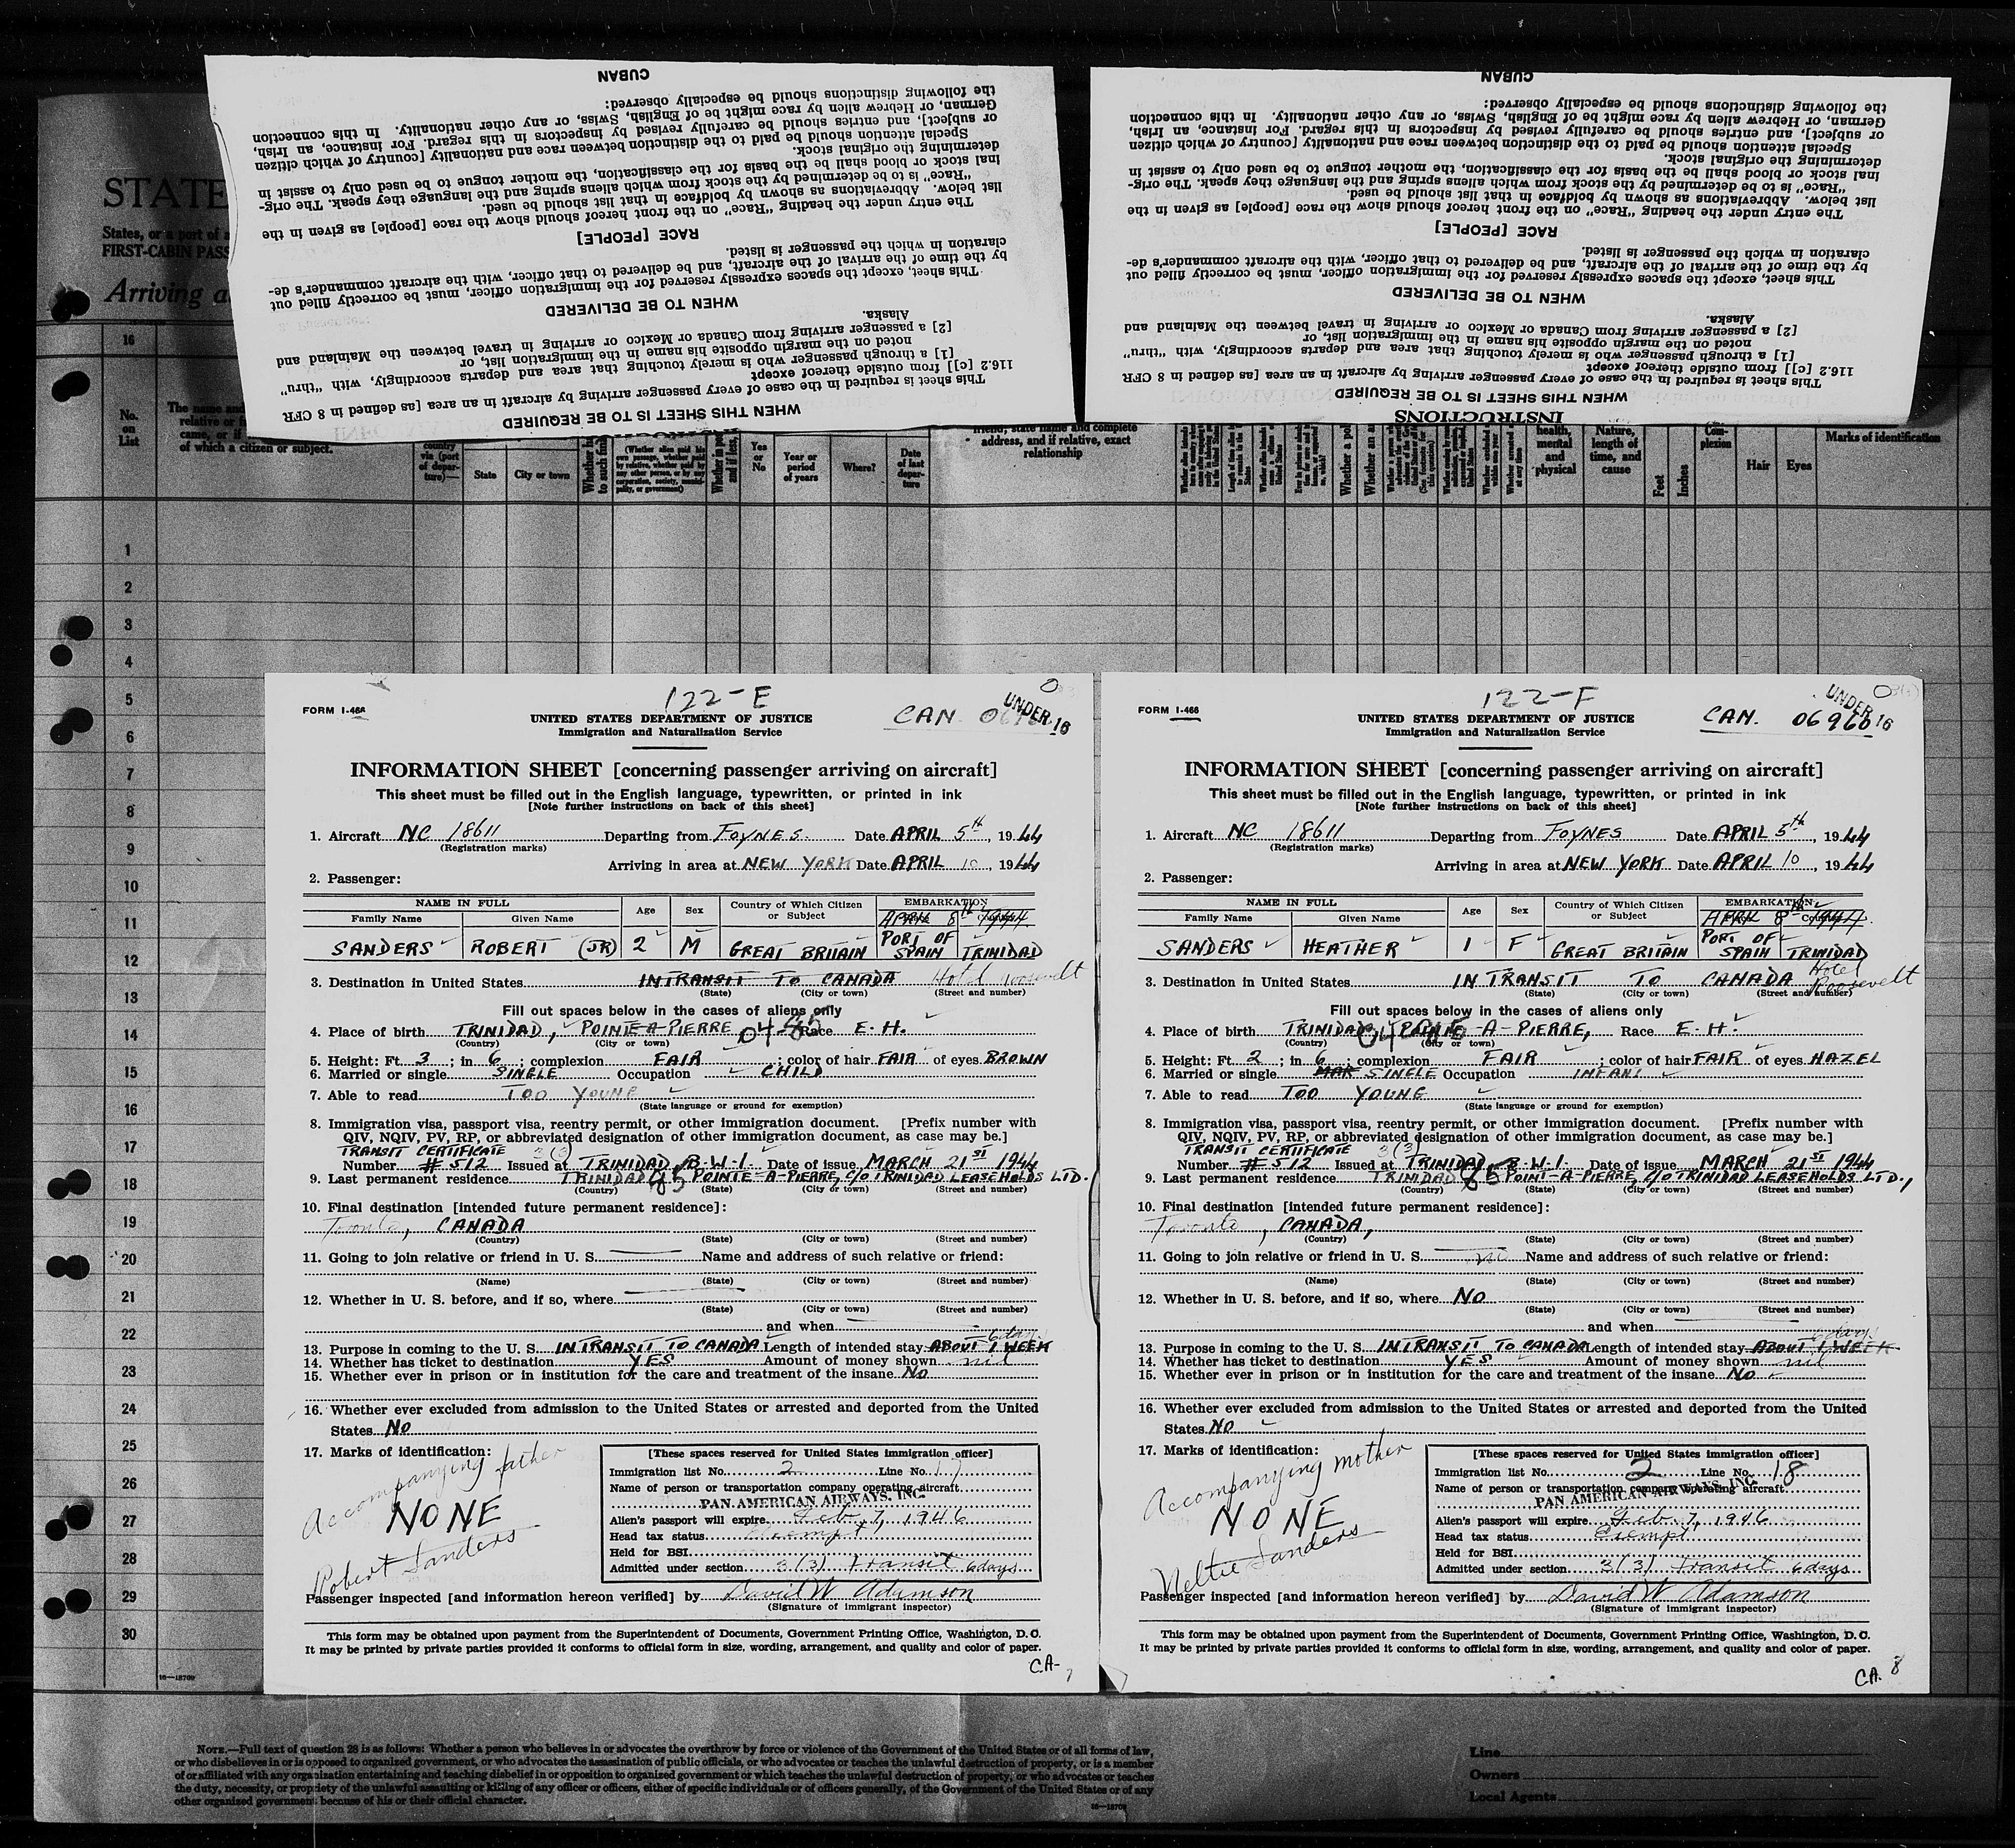 CUBAN
the following distinctions should be especially observed:
German, or Hebrew alien by race might be of English, Swiss, or any other nationality. In this connection
or subject], and entries should be carefully revised by inspectors in this regard. For instance, an Irish,
Special attention should be paid to the distinction between race and nationality [country of which citizen
determining the original stock.
inal stock or blood shall be the basis for the classification, the mother tongue to be used only to assist in
"Race" is to be determined by the stock from which aliens spring and the language they speak. The orig-
list below. Abbreviations as shown by boldface in that list should be used.
The entry under the heading "Race" on the front hereof should show the race [people] as given in the
RACE [PEOPLE]
claration in which the passenger is listed.
by the time of the arrival of the aircraft, and be delivered to that officer, with the aircraft commander's de-
This sheet, except the spaces expressly reserved for the immigration officer, must be correctly filled out
WHEN TO BE DELIVERED
Alaska.
[2] a passenger arriving from Canada or Mexico or arriving in travel between the Mainland and
noted on the margin opposite his name in the immigration list, or
[1] a through passenger who is merely touching that area and departs accordingly, with "thru"
116.2 [c]] from outside thereof except
This sheet is required in the case of every passenger arriving by aircraft in an area [as defined in 8 CFR
WHEN THIS SHEET IS TO BE REQUIRED
CUBAN
the following distinctions should be especially observed:
German, or Hebrew alien by race might be of English, Swiss, or any other nationality. In this connection
or subject], and entries should be carefully revised by inspectors in this regard. For instance, an Irish,
Special attention should be paid to the distinction between race and nationality [country of which citizen
determining the original stock.
inal stock or blood shall be the basis for the classification, the mother tongue to be used only to assist in
"Race" is to be determined by the stock from which aliens spring and the language they speak. The orig-
list below. Abbreviations as shown by boldface in that list should be used.
The entry under the heading "Race" on the front hereof should show the race [people] as given in the
RACE [PEOPLE]
claration in which the passenger is listed.
by the time of the arrival of the aircraft, and be delivered to that officer, with the aircraft commander's de-
This sheet, except the spaces expressly reserved for the immigration officer, must be correctly filled out
WHEN TO BE DELIVERED
Alaska.
[2] a passenger arriving from Canada or Mexico or arriving in travel between the Mainland and
noted on the margin opposite his name in the immigration list, or
[1] a through passenger who is merely touching that area and departs accordingly, with "thru"
116.2 [c]] from outside thereof except
This sheet is required in the case of every passenger arriving by aircraft in an area [as defined in 8 CFR
WHEN THIS SHEET IS TO BE REQUIRED
INSTRUCTIONS
STATE
States, or a port of a
FIRST-CABIN PASS
Arriving a
16
No. on List
The name and
relative or f
came, or if
of which a citizen or subject.
country via (port of departure)—
State
City or town
Yes or No
Year or period of years
Where?
Date of last departure
friend, state name and complete
address, and if relative, exact
relationship
health, mental and physical
Nature, length of time, and cause
Feet
Inches
Complexion
Hair
Eyes
Marks of identification
1
2
3
4
5
6
7
8
9
10
11
12
13
14
15
16
17
18
19
20
21
22
23
24
25
26
27
28
29
30
16—18709
122-E
FORM I-466
CAN.
UNDER 16
UNITED STATES DEPARTMENT OF JUSTICE
Immigration and Naturalization Service
INFORMATION SHEET [concerning passenger arriving on aircraft]
This sheet must be filled out in the English language, typewritten, or printed in ink
[Note further instructions on back of this sheet]
1. Aircraft NC 18611 Departing from FOYNES. Date APRIL 5th, 1944
(Registration marks)
Arriving in area at NEW YORK Date APRIL 10, 1944
2. Passenger:
NAME IN FULL Age Sex Country of Which Citizen or Subject EMBARKATION
Family Name Given Name APRIL 8th 1944.
SANDERS ROBERT (JR) 2 M GREAT BRITAIN PORT OF SPAIN TRINIDAD
3. Destination in United States IN TRANSIT TO CANADA Hotel Roosevelt
(State) (City or town) (Street and number)
Fill out spaces below in the cases of aliens only
4. Place of birth TRINIDAD, POINTE-A-PIERRE 04-85 Race E.H.
(Country) (City or town)
5. Height: Ft. 3; in 6; complexion FAIR; color of hair FAIR of eyes BROWN
6. Married or single SINGLE Occupation CHILD
7. Able to read TOO YOUNG
(State language or ground for exemption)
8. Immigration visa, passport visa, reentry permit, or other immigration document. [Prefix number with
QIV, NQIV, PV, RP, or abbreviated designation of other immigration document, as case may be.]
TRANSIT CERTIFICATE 3(3)
Number #512 Issued at TRINIDAD B.W.I. Date of issue MARCH 21st 1944
9. Last permanent residence TRINIDAD 85 POINTE-A-PIERRE, C/O TRINIDAD LEASEHOLDS LTD.
(Country) (State) (City or town) (Street and number)
10. Final destination [intended future permanent residence]:
Toronto, CANADA
(Country) (State) (City or town) (Street and number)
11. Going to join relative or friend in U. S. Name and address of such relative or friend:
(Name) (State) (City or town) (Street and number)
12. Whether in U. S. before, and if so, where
(State) (City or town) (Street and number)
and when
6 days
13. Purpose in coming to the U. S. IN TRANSIT TO CANADA Length of intended stay ABOUT 1 WEEK
14. Whether has ticket to destination YES Amount of money shown nil
15. Whether ever in prison or in institution for the care and treatment of the insane NO
16. Whether ever excluded from admission to the United States or arrested and deported from the United
States NO
17. Marks of identification:
Accompanying father
NONE
Robert Sanders
[These spaces reserved for United States immigration officer]
Immigration list No. 2 Line No. 17
Name of person or transportation company operating aircraft
PAN AMERICAN AIRWAYS, INC.
Alien's passport will expire Feb. 7, 1946
Head tax status Exempt
Held for BSI
Admitted under section 3(3) transit 6 days
Passenger inspected [and information hereon verified] by David W Adamson
(Signature of immigrant inspector)
This form may be obtained upon payment from the Superintendent of Documents, Government Printing Office, Washington, D. C.
It may be printed by private parties provided it conforms to official form in size, wording, arrangement, and quality and color of paper.
C.A- 7
122-F
FORM I-466
CAN. 06960
UNDER 16
UNITED STATES DEPARTMENT OF JUSTICE
Immigration and Naturalization Service
INFORMATION SHEET [concerning passenger arriving on aircraft]
This sheet must be filled out in the English language, typewritten, or printed in ink
[Note further instructions on back of this sheet]
1. Aircraft NC 18611 Departing from FOYNES Date APRIL 5th, 1944
(Registration marks)
Arriving in area at NEW YORK Date APRIL 10, 1944
2. Passenger:
NAME IN FULL Age Sex Country of Which Citizen or Subject EMBARKATION
Family Name Given Name APRIL 8th 1944.
SANDERS HEATHER 1 F GREAT BRITAIN PORT OF SPAIN TRINIDAD
3. Destination in United States IN TRANSIT TO CANADA Hotel Roosevelt
(State) (City or town) (Street and number)
Fill out spaces below in the cases of aliens only
4. Place of birth TRINIDAD, POINTE-A-PIERRE, Race E.H.
(Country) (City or town)
5. Height: Ft. 2; in 6; complexion FAIR; color of hair FAIR of eyes HAZEL
6. Married or single MAR SINGLE Occupation INFANT
7. Able to read TOO YOUNG
(State language or ground for exemption)
8. Immigration visa, passport visa, reentry permit, or other immigration document. [Prefix number with
QIV, NQIV, PV, RP, or abbreviated designation of other immigration document, as case may be.]
TRANSIT CERTIFICATE 3(3)
Number #512 Issued at TRINIDAD B.W.I. Date of issue MARCH 21st 1944
9. Last permanent residence TRINIDAD 85 POINT-A-PIERRE, C/O TRINIDAD LEASEHOLDS LTD.,
(Country) (State) (City or town) (Street and number)
10. Final destination [intended future permanent residence]:
Toronto, CANADA,
(Country) (State) (City or town) (Street and number)
11. Going to join relative or friend in U. S. no Name and address of such relative or friend:
(Name) (State) (City or town) (Street and number)
12. Whether in U. S. before, and if so, where NO
(State) (City or town) (Street and number)
and when
6 days
13. Purpose in coming to the U. S. IN TRANSIT TO CANADA Length of intended stay ABOUT 1 WEEK
14. Whether has ticket to destination YES Amount of money shown nil
15. Whether ever in prison or in institution for the care and treatment of the insane NO
16. Whether ever excluded from admission to the United States or arrested and deported from the United
States NO
17. Marks of identification:
Accompanying mother
NONE
Neltie Sanders
[These spaces reserved for United States immigration officer]
Immigration list No. 2 Line No. 18
Name of person or transportation company operating aircraft
PAN AMERICAN AIRWAYS, INC.
Alien's passport will expire Feb. 7, 1946
Head tax status Exempt
Held for BSI
Admitted under section 3(3) transit 6 days
Passenger inspected [and information hereon verified] by David W Adamson
(Signature of immigrant inspector)
This form may be obtained upon payment from the Superintendent of Documents, Government Printing Office, Washington, D. C.
It may be printed by private parties provided it conforms to official form in size, wording, arrangement, and quality and color of paper.
C.A. 8
NOTE.—Full text of question 28 is as follows: Whether a person who believes in or advocates the overthrow by force or violence of the Government of the United States or of all forms of law,
or who disbelieves in or is opposed to organized government, or who advocates the assassination of public officials, or who advocates or teaches the unlawful destruction of property, or is a member
of or affiliated with any organization entertaining and teaching disbelief in or opposition to organized government or which teaches the unlawful destruction of property, or who advocates or teaches
the duty, necessity, or propriety of the unlawful assaulting or killing of any officer or officers, either of specific individuals or of officers generally, of the Government of the United States or of any
other organized government because of his or their official character.
16—18709
Line
Owners
Local Agents